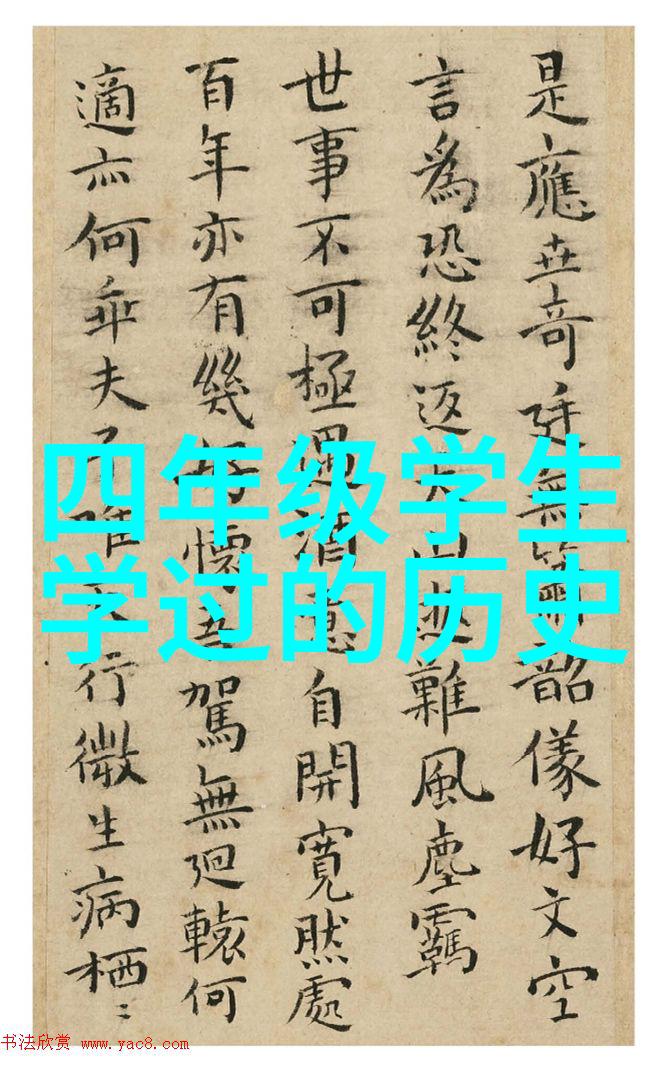 是應世奇廷無韶儀好文空
言爲恐終返難風塵羈
世事不可極遇意自開寬然處
百年亦有幾懷吾駕無迴轅何
適亦何乖夫行微生病栖〻
四年级学生
学过的历史
书法欣赏 www.yac8.com